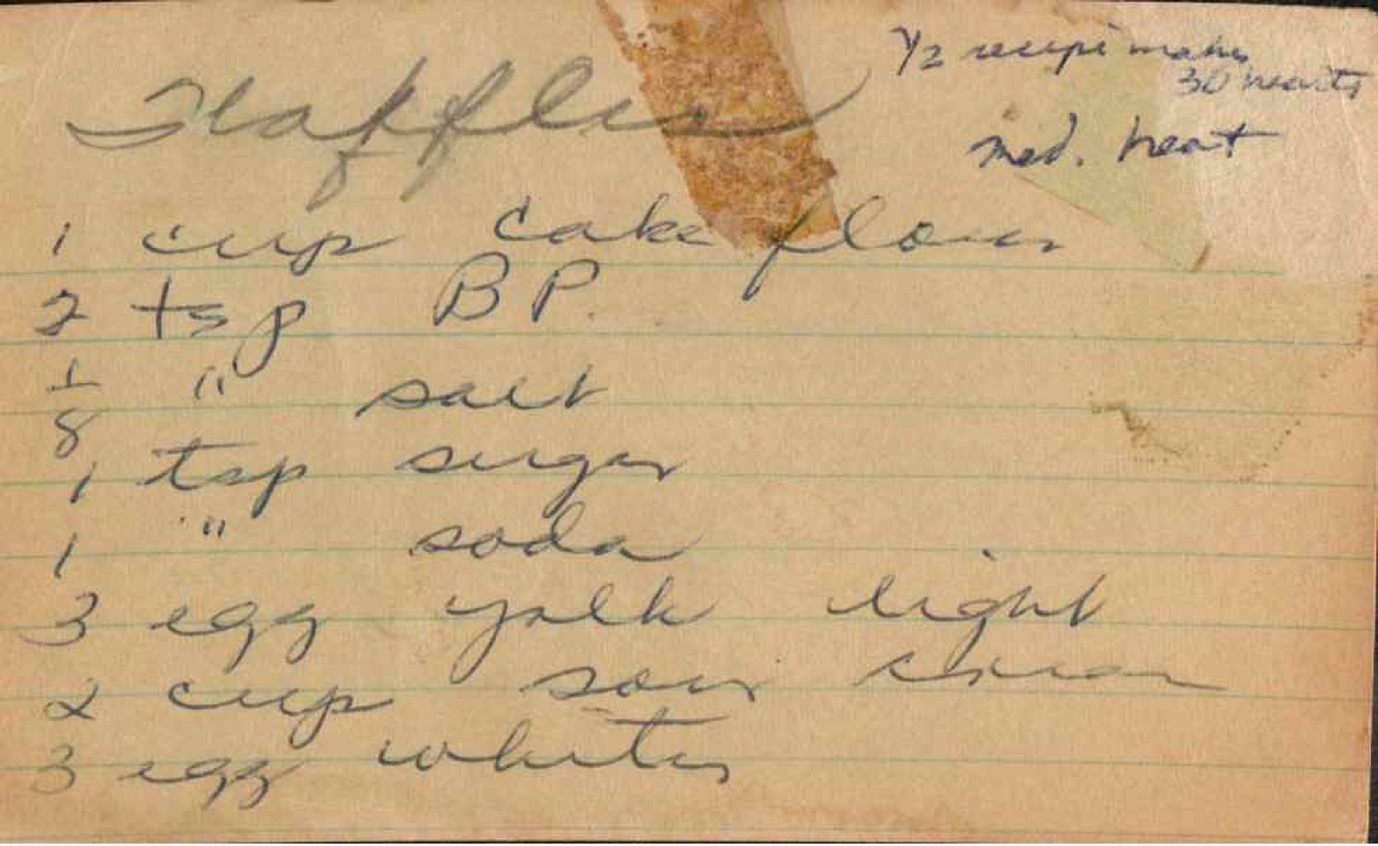 1/2 recipe makes
30 hearts
Waffles
med. heat
1 cup cake flour
2 tsp BP.
1/8 " salt
1 tsp sugar
1 " soda
3 egg yolk light
2 cup sour cream
3 egg whites